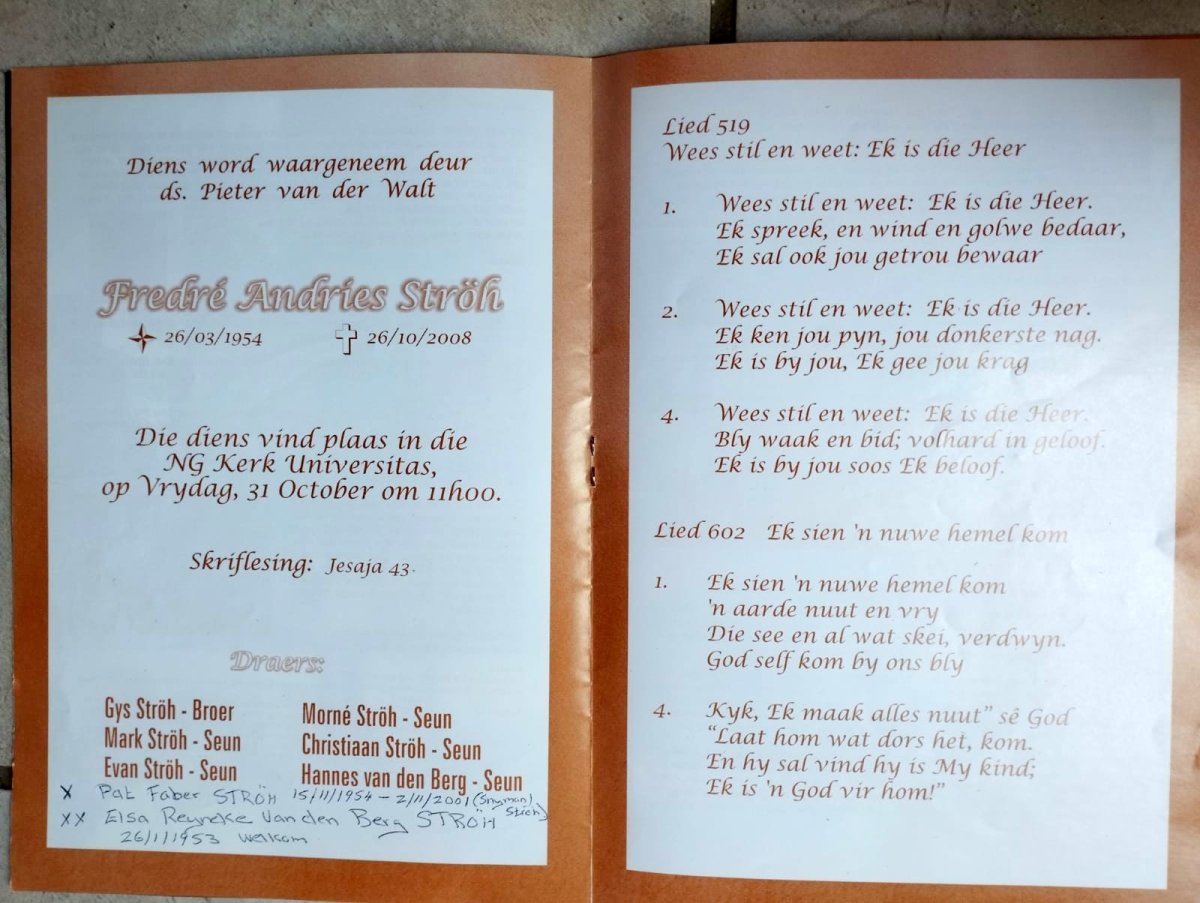 Diens word waargeneem deur
ds. Pieter van der Walt
Fredré Andries Ströh
26/03/1954 26/10/2008
Die diens vind plaas in die
NG Kerk Universitas,
op Vrydag, 31 October om 11h00.
Skriflesing: Jesaja 43.
Draers:
Gys Ströh - Broer
Mark Ströh - Seun
Evan Ströh - Seun
Morné Ströh - Seun
Christiaan Ströh - Seun
Hannes van den Berg - Seun
x Pat Faber STRÖH 15/11/1954 - 2/11/2001 (Snyman)
xx Elsa Reyneke Van den Berg STRÖH
26/1/1953 Welkom
Lied 519
Wees stil en weet: Ek is die Heer
1. Wees stil en weet: Ek is die Heer.
Ek spreek, en wind en golwe bedaar,
Ek sal ook jou getrou bewaar
2. Wees stil en weet: Ek is die Heer.
Ek ken jou pyn, jou donkerste nag.
Ek is by jou, Ek gee jou krag
4. Wees stil en weet: Ek is die Heer.
Bly waak en bid; volhard in geloof.
Ek is by jou soos Ek beloof.
Lied 602 Ek sien 'n nuwe hemel kom
1. Ek sien 'n nuwe hemel kom
'n aarde nuut en vry
Die see en al wat skei, verdwyn.
God self kom by ons bly
4. Kyk, Ek maak alles nuut” sê God
“Laat hom wat dors het, kom.
En hy sal vind hy is My kind;
Ek is 'n God vir hom!”